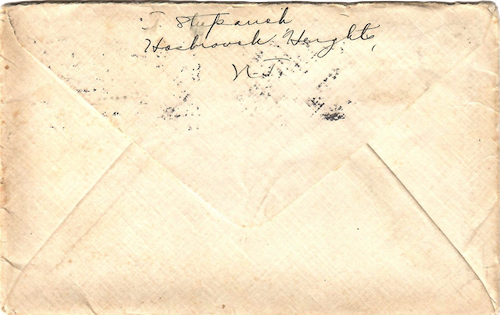 J. Stupansk
Hasbrouck Heights,
N.J.